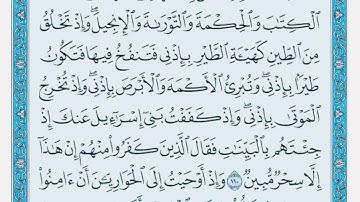 ٱلْكِتَٰبَ وَٱلْحِكْمَةَ وَٱلتَّوْرَىٰةَ وَٱلْإِنجِيلَ ۖ وَإِذْ تَخْلُقُ
مِنَ ٱلطِّينِ كَهَيْـَٔةِ ٱلطَّيْرِ بِإِذْنِى فَتَنفُخُ فِيهَا فَتَكُونُ
طَيْرًۢا بِإِذْنِى ۖ وَتُبْرِئُ ٱلْأَكْمَهَ وَٱلْأَبْرَصَ بِإِذْنِى ۖ وَإِذْ تُخْرِجُ
ٱلْمَوْتَىٰ بِإِذْنِى ۖ وَإِذْ كَفَفْتُ بَنِىٓ إِسْرَٰٓءِيلَ عَنكَ إِذْ
جِئْتَهُم بِٱلْبَيِّنَٰتِ فَقَالَ ٱلَّذِينَ كَفَرُوا۟ مِنْهُمْ إِنْ هَٰذَآ
إِلَّا سِحْرٌ مُّبِينٌ ١١٠ وَإِذْ أَوْحَيْتُ إِلَى ٱلْحَوَارِيِّـۧنَ أَنْ ءَامِنُوا۟